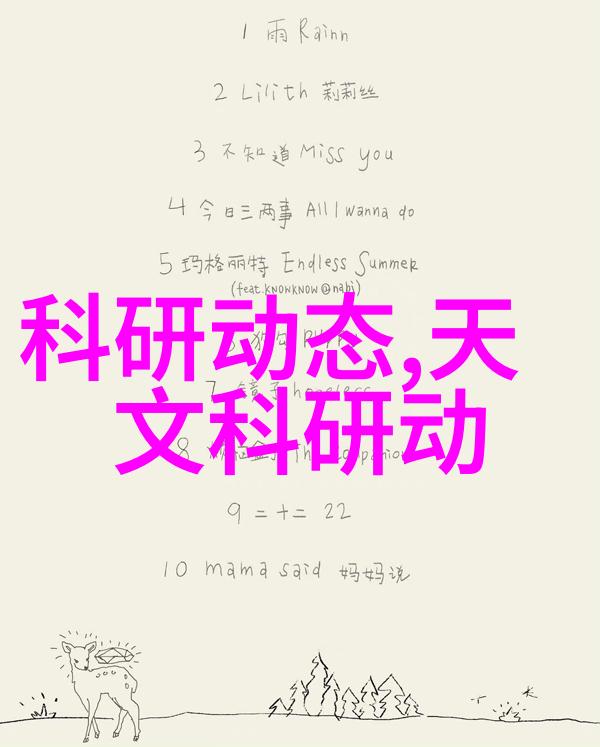 1 雨 Rainn
2 Lilith 莉莉丝
3 不知道 Miss you
4 今日三两事 All I wanna do
5 玛格丽特 Endless Summer
(feat.KNOWKNOW@nabi)
科研动态,天
7 镜子 hopeless
文科研动
8
9 二十二 22
10 mama said 妈妈说